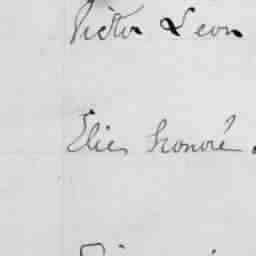 Victor Leon
Elie, honoré.